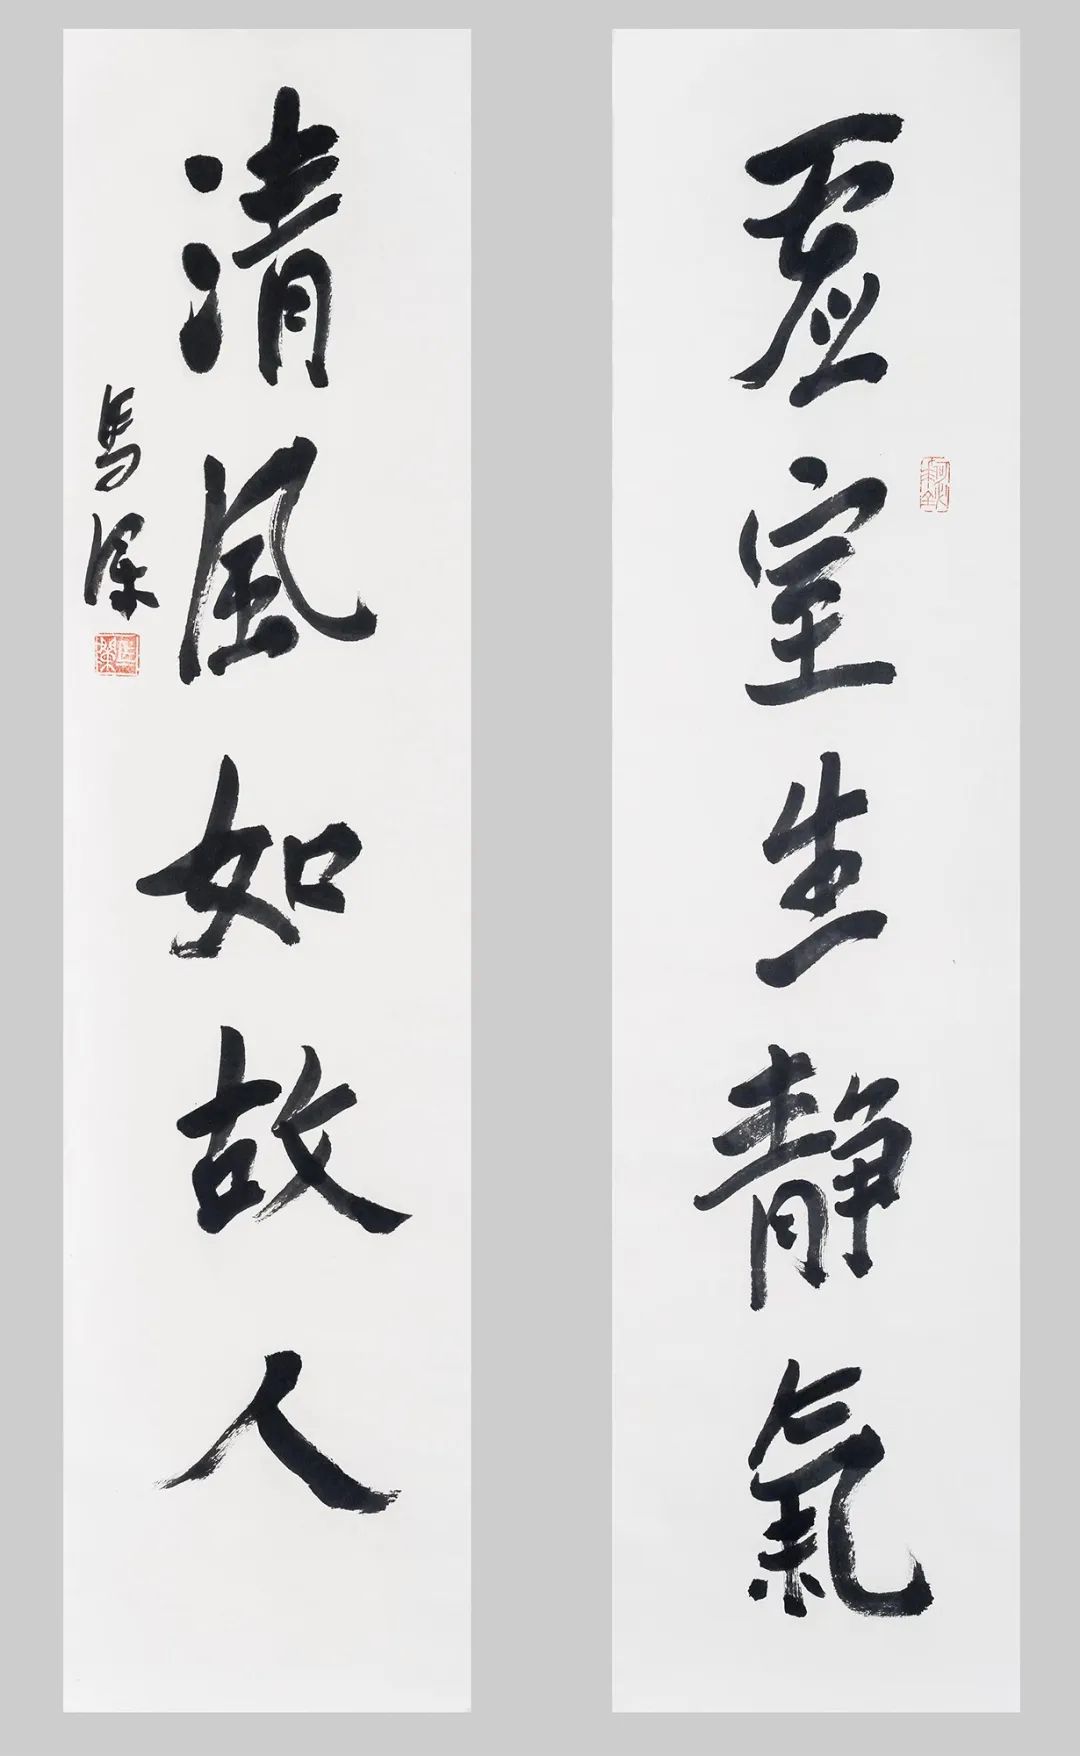 虚室生静氣
清風如故人
馬